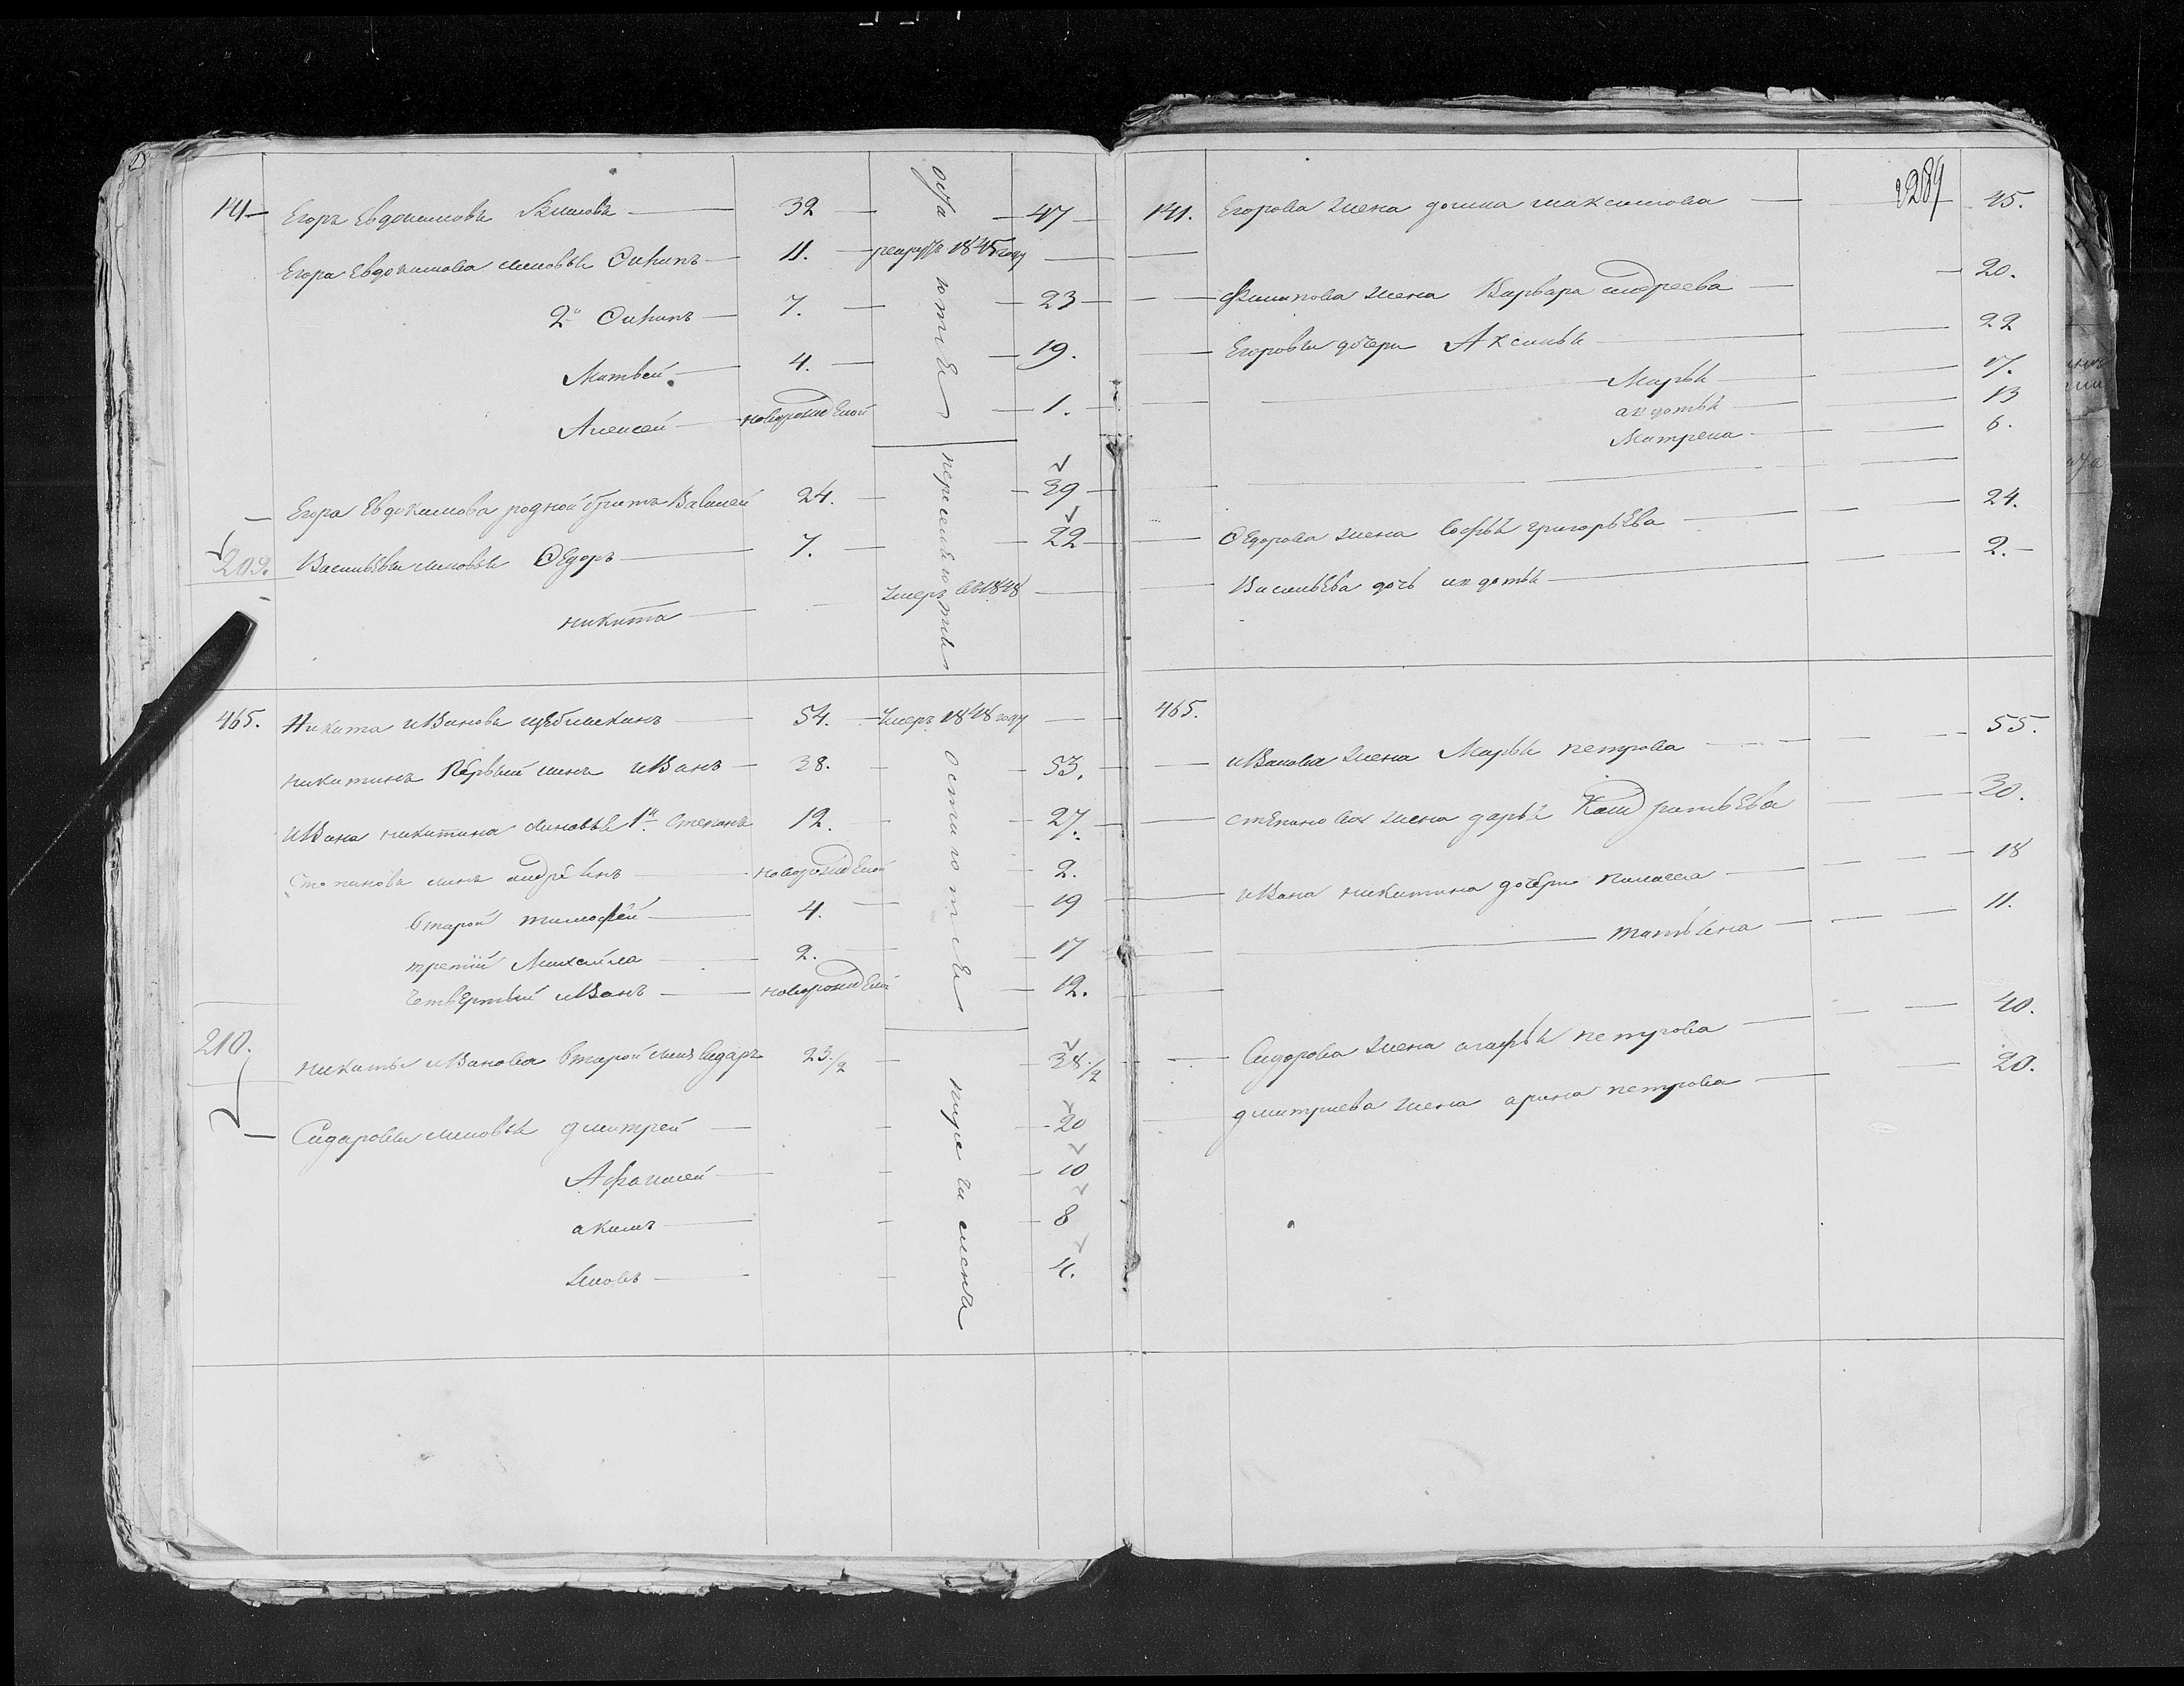 289
141 Егоръ Евдокимовъ 32 47
Егора Евдокимова сыновья 11. рекрутъ 1845 году
2й 7. 23
Матвей 4. 19.
Алексей новорожденой 1.
остаются
Егора Евдокимова родной братъ Василей 24. 39
209. Васильевы сыновья Федоръ 7. 22
никита умеръ 1848
переселяются
465. Никита Ивановъ 54. умеръ 1848 году
никитинъ первый сынъ Иванъ 38. 53.
Ивана никитина сыновья 1й Степанъ 12. 27.
сынъ новорожденой 2.
второй тимофей 4. 19
третий Михайла 2. 17
четвертый Иванъ новорожденой 12.
остаются
210. никиты Иванова второй сынъ Сидаръ 23 1/2 38 1/2
Сидаровы сыновья дмитрей 20
Афанасей 10
акимъ 8
4.
141. Егорова жена домна максимова 45.
Филипова жена Варвара андреева 20.
Егоровы дочери Аксинья 22
Марья 17.
авдотья 13
Матрена 6.
Федорова жена софья григорьева 24.
Васильева дочь авдотья 2.
465.
Иванова жена Марья петрова 55.
степанова жена дарья Кондратьева 30.
Ивана никитина дочери пелагея 18
татьяна 11.
Сидорова жена агафья петрова 40.
дмитриева жена арина петрова 20.